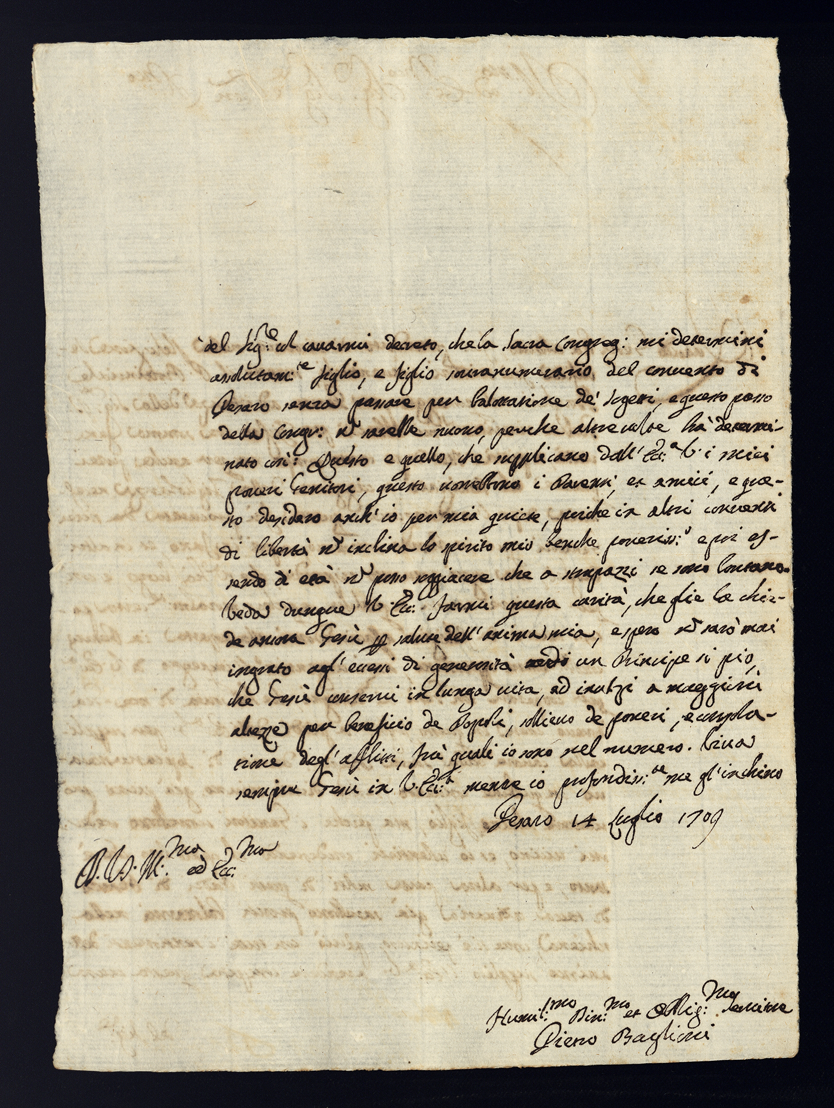 del Sig:re col cavarmi decreto, che la Sacra Congreg: mi determini
assolutam:te figlio, e figlio sopranumerario del convento di
Pesaro senza passare per balottatione de' sogetti, e questo passo
della Congr: nõ sarebbe nuovo, perche altre volte hà determi-
nato così: Questo e quello, che supplicano dall' Ecc:a V: i miei
poveri Genitori, questo vorrebbono i Parenti, et amici, e que-
sto desidero anch' io per mia quiete, poiche in altri conventi
di libertà nõ inclina lo spirito mio benche poveriss:o e poi es-
sendo di età nõ posso soggiacere che a strapazzi se sono lontano.
Veda dunque V: Ecc: farmi questa carità, che glie la chie-
de ancora Giesù p salute dell'anima mia, e spero nõ sarò mai
ingrato agl' eccessi di generosità un Principe si pio,
che Giesù conservi in lunga vita, ad inalzi a maggiori
altezze per beneficio de Popoli, sollievo de poveri, e consola-
tione degl' afflitti, frà quali io sono nel numero. Viva
sempre Giesù in V: Ecc:a mentre io profondiss:te me gl' inchino
Pesaro 14 Luglio 1709
D. V. Ill:ma ed Ecc:ma
Humil:mo Div:mo et Obblig:mo Servitore
Pietro Baglioni